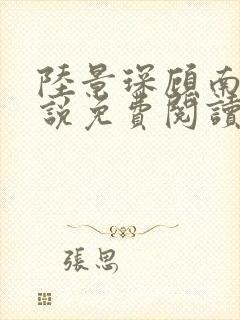 陸景琛顧南
說免費閱讀
張思